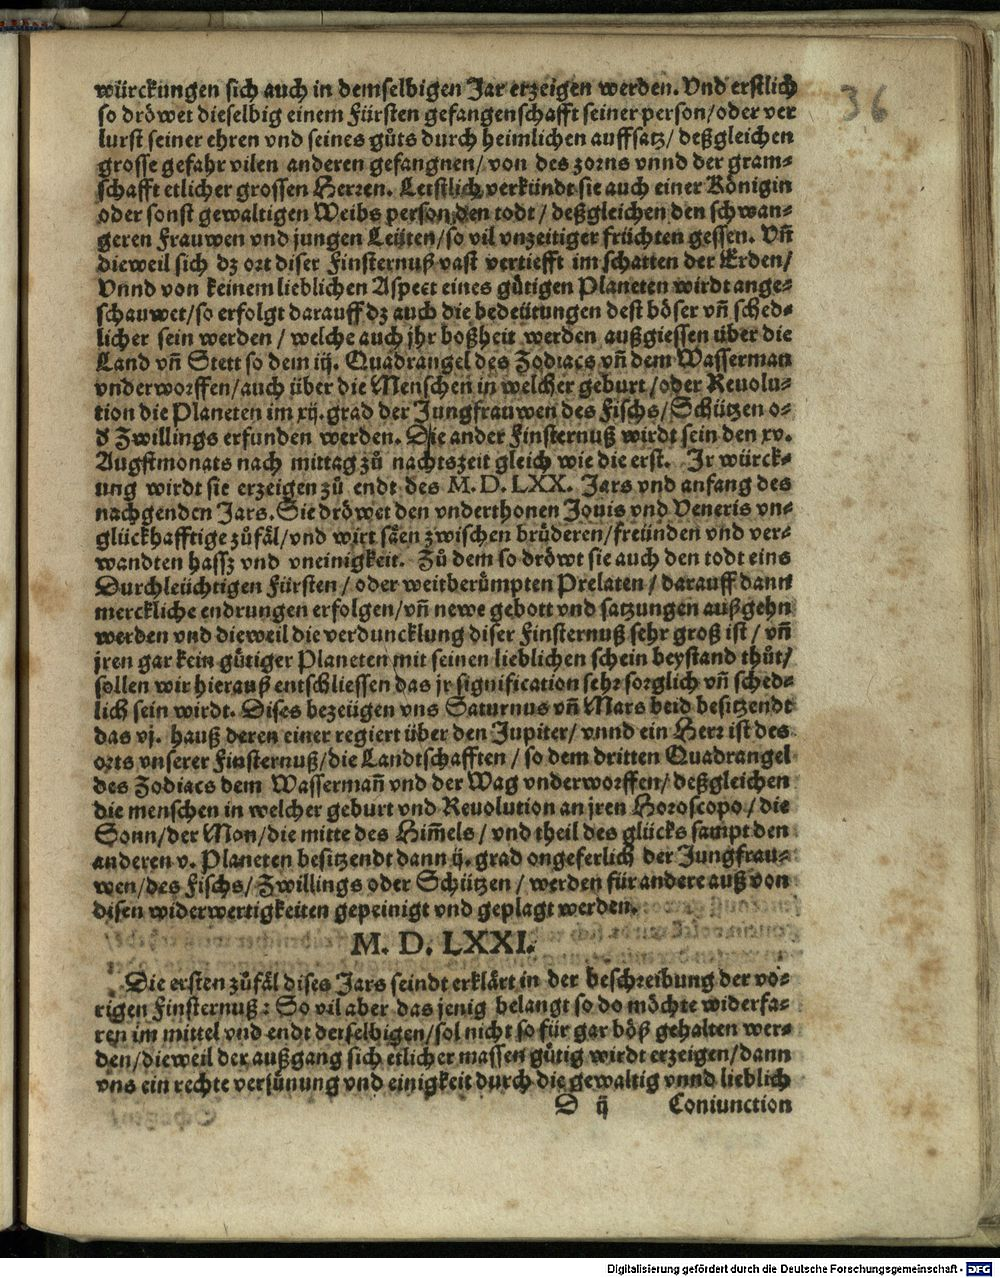 36
würckungen sich auch in demselbigen Jar erzeigen werden. Vnd erstlich
so dröwet dieselbig einem Fürsten gefangenschafft seiner person/oder ver
lurst seiner ehren vnd seines gůts durch heimlichen auffsatz/ deßgleichen
grosse gefahr vilen anderen gefangnen/ von des zorns vnnd der gram⸗
schafft etlicher grossen Herren. Letstlich verkündt sie auch einer Königin
oder sonst gewaltigen Weibs person den todt / deßgleichen den schwan⸗
geren Frauwen vnd jungen Leüten/so vil vnzeitiger früchten gessen. Vñ
dieweil sich dz ort diser Finsternuß vast vertiefft im schatten der Erden/
Vnnd von keinem lieblichen Aspect eines gůtigen Planeten wirdt ange⸗
schauwet/so erfolgt darauff dz auch die bedeütungen dest böser vñ sched⸗
licher sein werden / welche auch jhr boßheit werden außgiessen über die
Land vñ Stett so dem iij. Quadrangel des Zodiacs vñ dem Wasserman
vnderworffen/auch über die Menschen in welcher geburt/oder Reuolu⸗
tion die Planeten im xij. grad der Jungfrauwen des Fischs/Schützen o⸗
d Zwillings erfunden werden. Die ander Finsternuß wirdt sein den xv.
Augstmonats nach mittag zů nachtszeit gleich wie die erst. Ir würck⸗
ung wirdt sie erzeigen zů endt des M. D. LXX. Jars vnd anfang des
nachgenden Jars. Sie dröwet den vnderthonen Jouis vnd Veneris vn⸗
glückhafftige zůfäl/vnd wirt säen zwischen brüderen/freünden vnd ver⸗
wandten hassz vnd vneinigkeit. Zů dem so dröwt sie auch den todt eins
Durchleüchtigen Fürsten / oder weitberůmpten Prelaten / darauff dann
merckliche endrungen erfolgen/vñ newe gebott vnd satzungen außgehn
werden vnd dieweil die verduncklung diser Finsternuß sehr groß ist / vñ
jren gar kein gůtiger Planeten mit seinen lieblichen schein beystand thůt/
sollen wir hierauß entschliessen das jr signification sehr sorglich vñ sched⸗
lich sein wirdt. Dises bezeügen vns Saturnus vñ Mars beid besitzendt
das vj. hauß deren einer regiert über den Jupiter/ vnnd ein Herr ist des
orts vnserer Finsternuß/die Landtschafften / so dem dritten Quadrangel
des Zodiacs dem Wassermañ vnd der Wag vnderworffen/ deßgleichen
die menschen in welcher geburt vnd Reuolution an jren Horoscopo / die
Sonn/der Mon/die mitte des Him̃els / vnd theil des glücks sampt den
anderen v. Planeten besitzendt dann ij. grad ongeferlich der Jungfrau⸗
wen/des Fischs/Zwillings oder Schützen / werden für andere auß von
disen widerwertigkeiten gepeinigt vnd geplagt werden.
M. D. LXXI.
Die ersten zůfäl dises Jars seindt erklärt in der beschreibung der vo⸗
rigen Finsternuß: So vil aber das jenig belangt so do möchte widerfa⸗
ren im mittel vnd endt derselbigen/sol nicht so für gar böß gehalten wer⸗
den/dieweil der außgang sich etlicher massen gůtig wirdt erzeigen/dann
vns ein rechte versůnung vnd einigkeit durch die gewaltig vnnd lieblich
D ij Coniunction
Digitalisierung gefördert durch die Deutsche Forschungsgemeinschaft - DFG